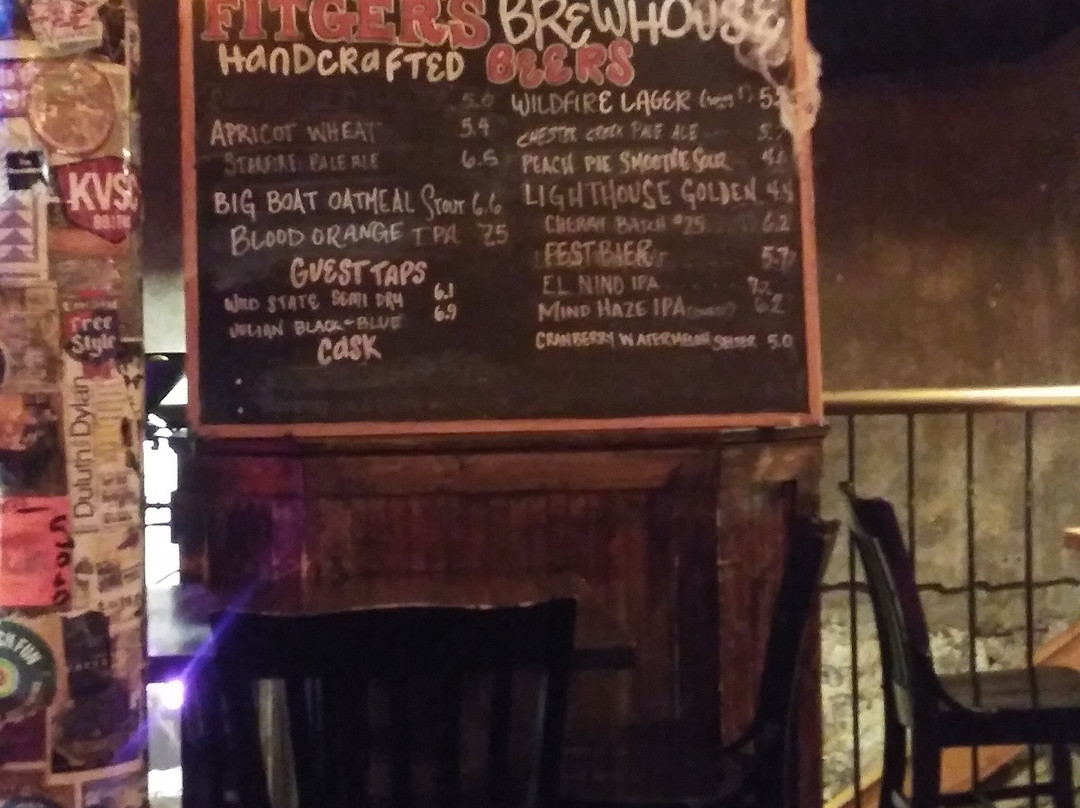 FITGERS BREWHOUSE
HANDCRAFTED BEERS
5.0
APRICOT WHEAT 5.4
STARFIRE PALE ALE 6.5
BIG BOAT OATMEAL STOUT 6.6
BLOOD ORANGE IPA 7.5
GUEST TAPS
WILD STATE SEMI DRY 6.1
JULIAN BLACK-BLUE 6.9
CASK
WILDFIRE LAGER
CHESTER CREEK PALE ALE
PEACH PIE SMOOTHIE SOUR
LIGHTHOUSE GOLDEN
CHERRY BATCH #25 6.2
FESTBIER 5.7
EL NINO IPA
MIND HAZE IPA 6.2
CRANBERRY WATERMELON SELTZER 5.0
KVSC
Free
Style
Duluth Dylan